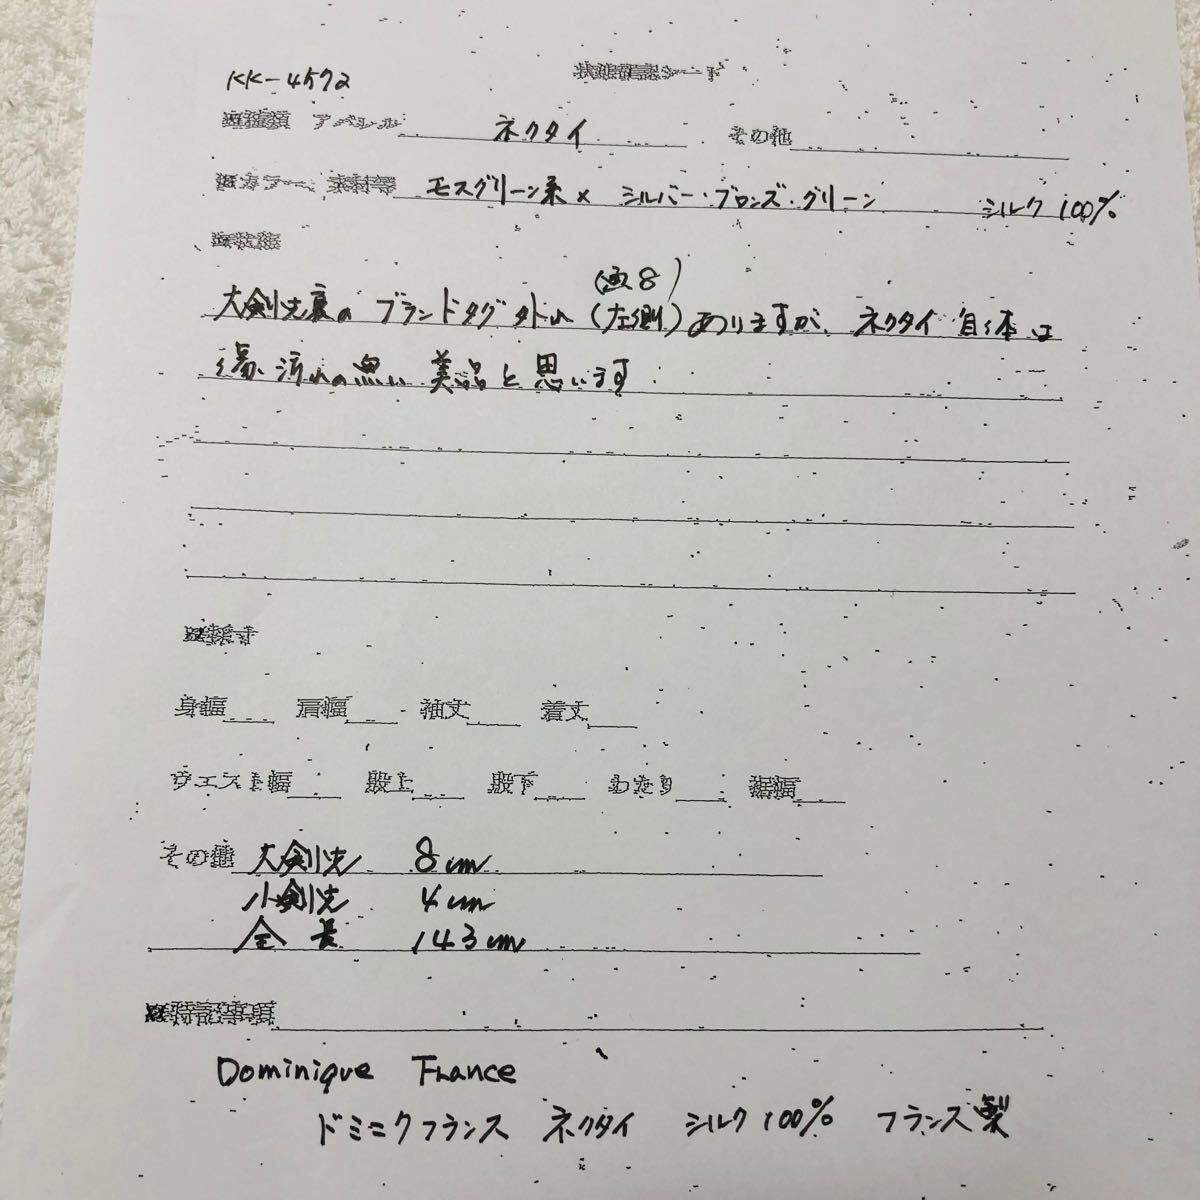 KK-4572
状態確認シート
アパレル ネクタイ その他
カラー、素材等 モスグリーン系 × シルバー・ブロンズ・グリーン シルク 100%
8)
大剣先裏の ブランドタグ外れ (左側) ありますが、 ネクタイ 自体は
傷、汚れの無い 美品と思います
※採寸
身幅 肩幅 袖丈 着丈
ウエスト幅 股上 股下 わたり 裾幅
その他 大剣先 8cm
小剣先 4cm
全長 143cm
※特記事項
Dominique France
ドミニクフランス ネクタイ シルク 100% フランス製